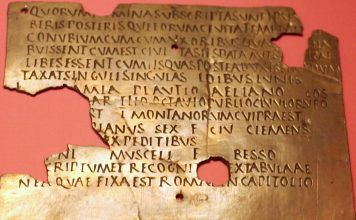 QVORVM NOMINA SVBSCRIPTA SVNT IPSI
BERIS POSTERISQVE EORVM CIVITATEM
CONVBIVM CVM VXORIBVS QVAS
BVISSENT CVM EST CIVITAS IIS DATA AVT
LIBES ESSENT CVM IIS QVAS POSTEA
TAXAT SINGVLI SINGVLAS IDIBVS IVNIS
PLAVTIO AELIANO COS
MONTANORVM CVI PRAEST
IANVS SEX F CIV CLEMENS
XPEDITIBVS
NI MVSCELLI F BESSO
CRIPTVM ET RECOGNIT EX TABVLA AE
NEA QVAE FIXA EST ROMAE IN CAPITOLIO